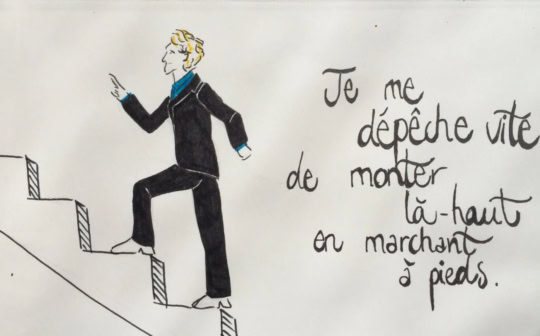 Je me
dépêche vite
de monter
là-haut
en marchant
à pieds.